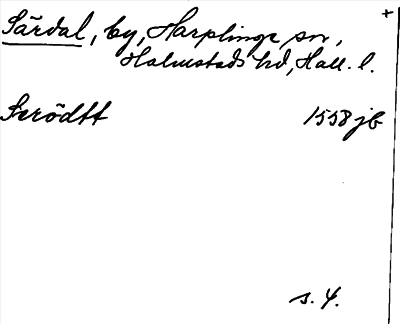 +
Särdal, by, Harplinge sn,
Halmstads hd, Hall. l.
Serödtt 1558 jb
s. 4.